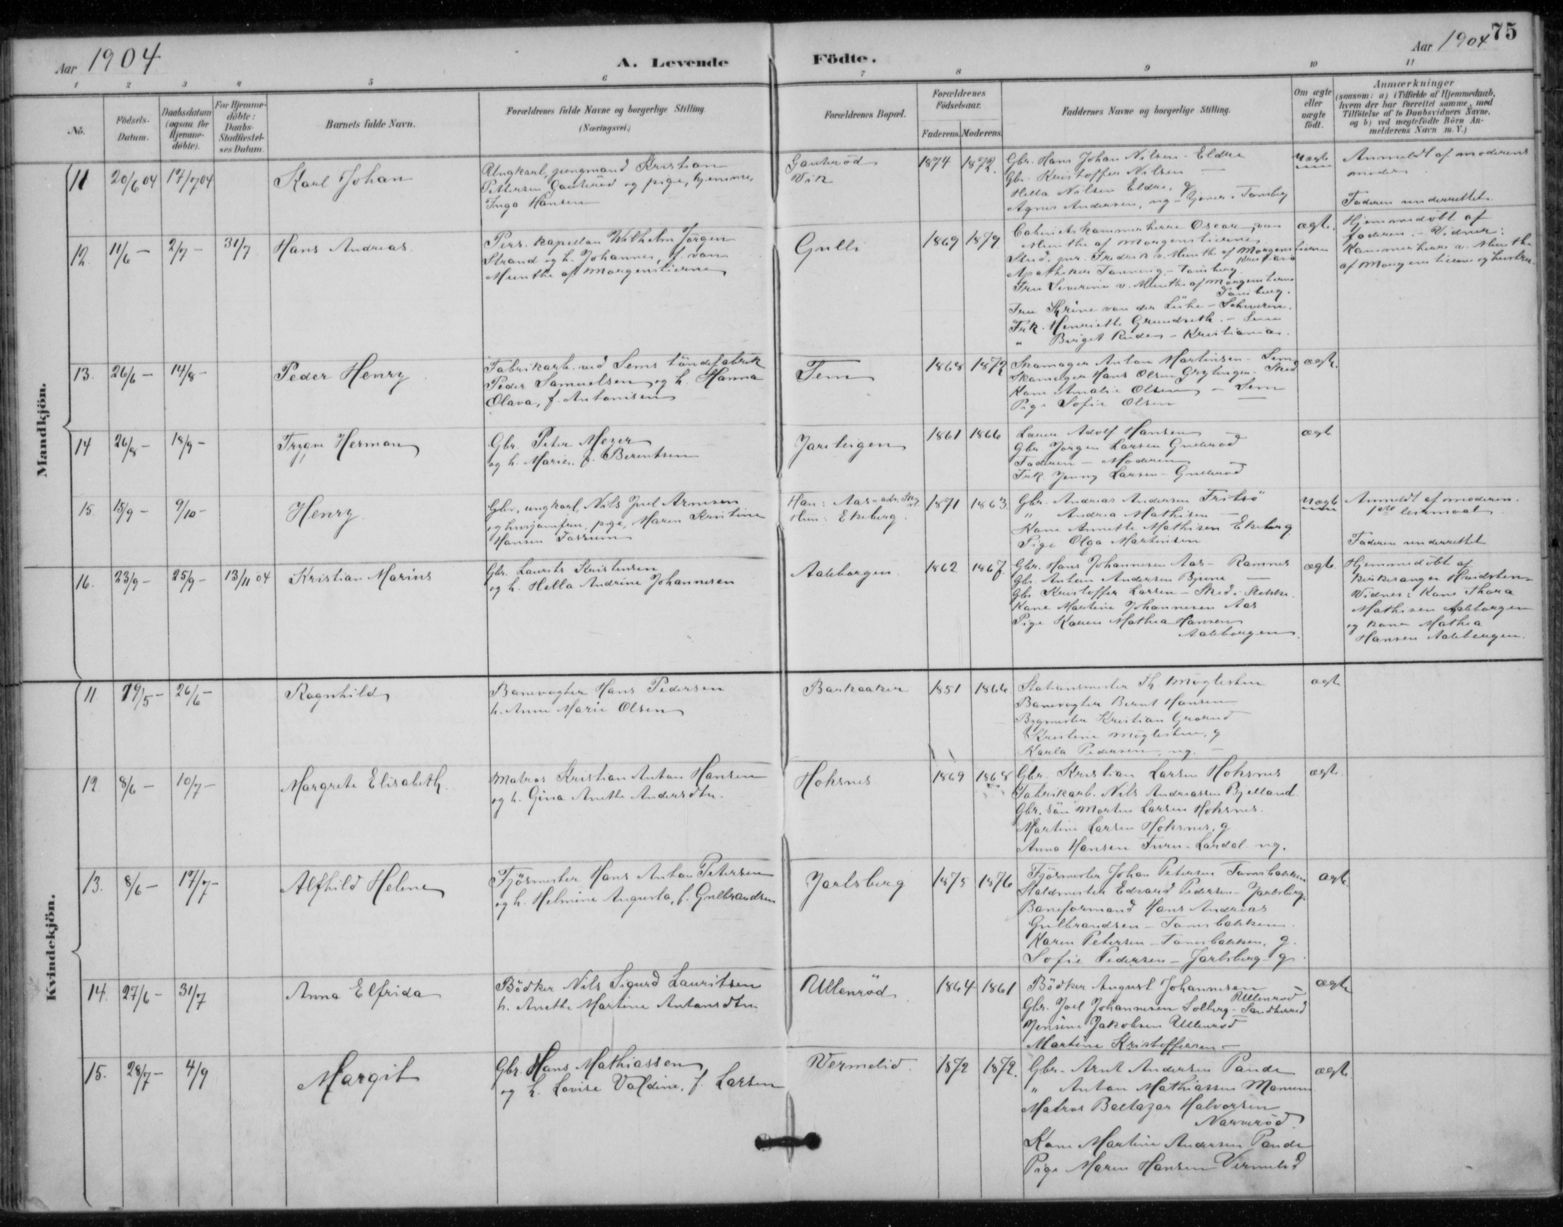 Aar 1904
A. Levende
Födte.
Aar 1904
75
1 2 3 4 5 6 7 8 9 10 11
No.
Födsels-
Datum.
Daabsdatum
(ogsaa for
Hjemme-
döbte).
For Hjemme-
döbte:
Daabs-
Stadfæstel-
ses Datum.
Barnets fulde Navn.
Forældrenes fulde Navne og borgerlige Stilling
(Næringsvei.)
Forældrenes Bopæl.
Forældrenes
Födselsaar.
Faderens Moderens
Faddernes Navne og borgerlige Stilling.
Om ægte
eller
uægte
födt.
Anmærkninger
(saasom: a) (Tilfælde af Hjemmedaab,
hvem der har forrettet samme, med
Tilföielse af to Daabsvidners Navne,
og b) ved uægtefödte Börn An-
melderens Navn m. V.)
Mandkjön.
11 20/6 04 17/7 04
Karl Johan
Ungkarl, jungmand Kristian
Pettersen Gauteröd og pige, hjemme,
Inga Hansen
Gauteröd
Vik
1874 1872.
Gbr. Hans Johan Nilsen - Eldre
Gbr. Kristoffer Nilsen —
Hella Nilsen Eldre, g
Agnes Andersen, ug - Tönsberg
uægte
Anmeldt af moderens
moder
Faderen underrettet.
12. 11/6 — 2/7 — 31/7
Hans Andreas
Pers. kapellan Wilhelm Jörgen
Strand og h. Johanne, f. von
Munthe af Morgenstierne
Gulli
1869 1879
Cabinetskammerherre Oscar von
Munthe af Morgenstierne
Stud. jur. Fredrik v. Munth af Morgenstierne
Kristiania
Apotheker Tönning - Tönsberg
Fru Severine v. Munthe af Morgenstierne
Tönsberg.
Fru von der Lühe - Schwerin.
Frk. Henriette Grundseth - Sem
" Birget - Kristiania.
ægte.
Hjemmedöbt af
faderen. - Vidner:
Kammerherre v. Munthe
af Morgenstierne og hustru.
13. 26/6 — 14/8 —
Peder Henry
Fabrikarb. ved Sems töndefabrik
Peder Samuelsen og h. Hanna
Olava, f. Antonisen
Tem
1868 1872
Skomager Anton Martinsen - Sem
Skomager Hans Olsen
Kone Amalie Olsen — Sem
Pige Sofie Olsen —
ægte
14 26/8 — 18/9 —
Trygve Herman
Gbr. Peter Meyer
og h. Marie, f. Berentsen
Jareteigen
1861 1866
Adolf Hansen
Gbr. Jörgen Larsen Gulleröd
Faderen — Moderen
Frk. Jenny Larsen - Gulleröd
ægte
15. 15/9 — 9/10 —
Henry.
Gbr., ungkarl Nils Juel Arnesen
og husjomfru, pige, Maren Kristine
Hansen
Han: Aas
Hun: Ekeberg.
1871 1863.
Gbr. Andreas Andersen
" Andrea Mathisen —
Kone Annette Mathisen Ekeberg
Pige Olga Martinsen
uægte
Anmeldt af moderen.
1ste leiermaal
Faderen underrettet
16. 23/9 — 25/9 — 13/11 04
Kristian Marius
Gbr. Laurits Kristensen
og h. Hella Andrine Johannesen
Aaleborgen
1862 1867
Gbr. Hans Johannesen Aas - Ramnes
Gbr. Anton Andersen Bjerne —
Gbr. Kristoffer Larsen - Sted i Stokke.
Kone Martine Johannesen Aas
Pige Karen Mathea Hansen
Aaleborgen
ægte
Hjemmedöbt af
kirkesanger Hvidsten
Vidner: Kone Thora
Mathisen Aaleborgen
og kone Mathea
Hansen Aaleborgen.
Kvindekjön.
11 19/5 — 26/6 —
Ragnhild
Banevogter Hans Pedersen
h. Anne Marie Olsen
Barkaaker
1851 1866
Stationsmester Th Möglestue
Banevogter Bernt Hansen
Bygmester Kristian Gröröd
Kristine Möglestue, g
Karla Pedersen, ug. —
ægte
12 8/6 — 10/7 —
Margrete Elisabeth.
Matros Kristian Anton Hansen
og h. Gina Anette Andersdtr.
Hoksnes
1869 1868
Gbr. Kristian Larsen Hoksnes
Fabrikarb. Nils Andreassen Bjelland
Gbr. sön Martin Larsen Hoksnes.
Martine Larsen Hoksnes, g
Anna Hansen ug.
ægte
13. 8/6 — 17/7 —
Alfhild Helene
Fjösmester Hans Anton Petersen
og h. Helmine Augusta, f. Gulbrandsen
Jarlsberg
1875 1876
Fjösmester Johan Petersen Tömsbakken
Staldmester Edvard Pedersen - Jarlsberg
Baneformand Hans Andreas
Gulbrandsen - Tömsbakken
Karen Petersen - Tömsbakken, g.
Sofie Pedersen - Jarlsberg g.
ægte
14. 27/6 — 31/7
Anna Elfrida
Bödker Nils Sigurd Lauritsen
h. Anette Martine Antonsdtr.
Ullenröd
1864 1861
Bödker August Johannesen
Ullenröd
Gbr. Joel Johannesen Solberg - Sandherred
Jensine Jakobsen Ullenröd
Martine Kristoffersen —
ægte
15. 28/7 — 4/9
Margit
Gbr. Hans Mathiassen
og h. Lovise Valdine, f. Larsen
Vermelid.
1872 1872.
Gbr. Arnt Andersen Pande
" Anton Mathiassen
Matros Baltazar Halvorsen
Narveröd.
Kone Martine Andersen Pande
Pige Maren Hansen Vermelid
ægte